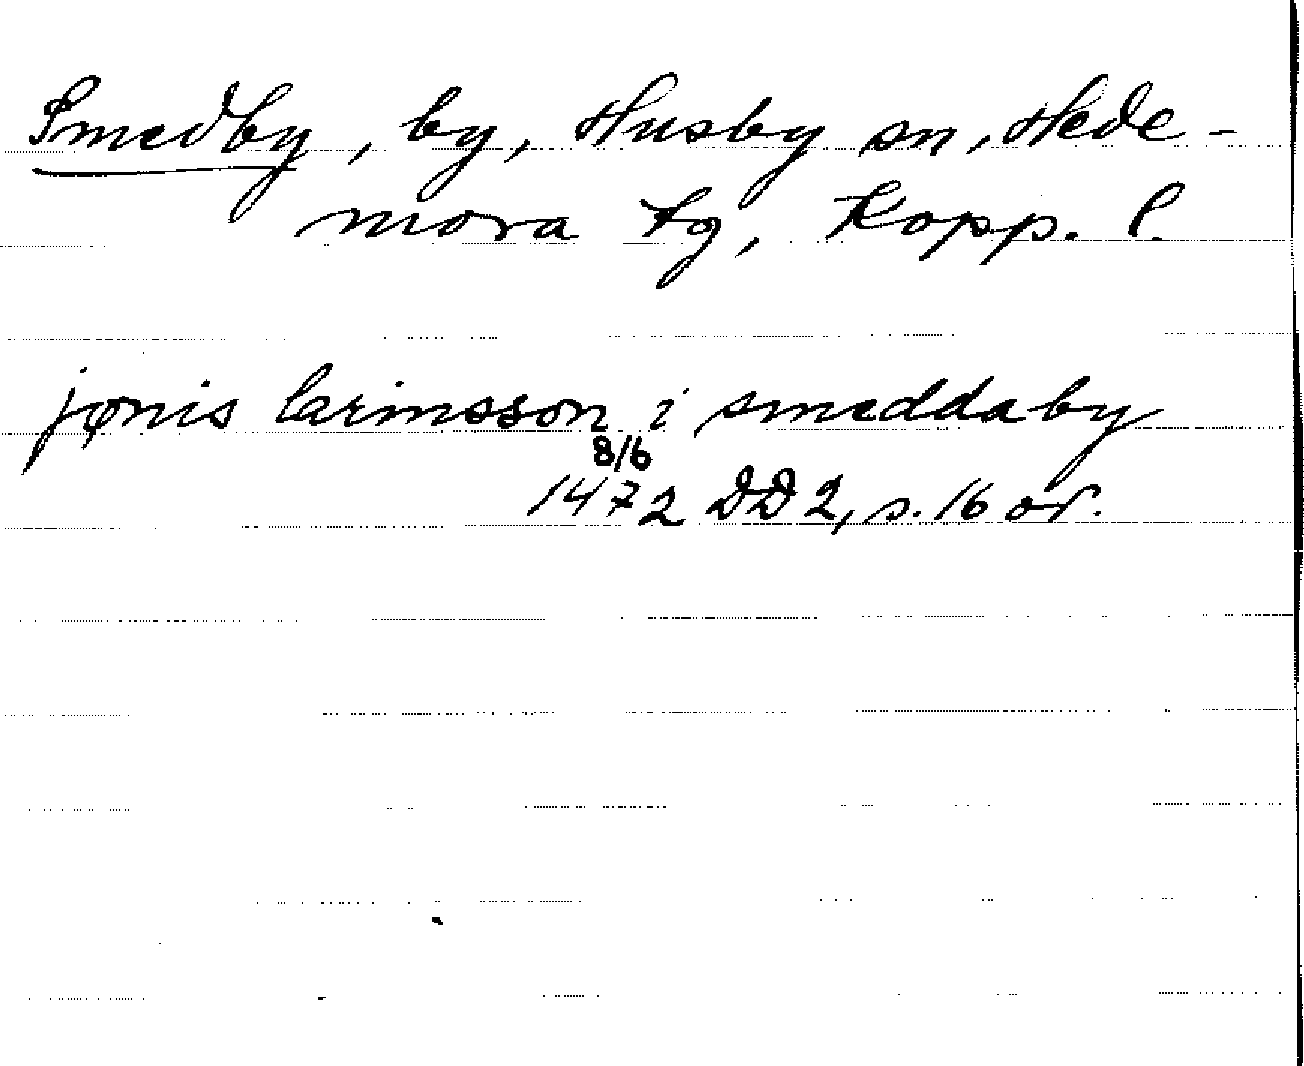 Smedby, by, Husby sn, Hede-
mora tg, Kopp. l.
jønis larinsson i smeddaby
8/6
1472 DD 2, s. 16 or.